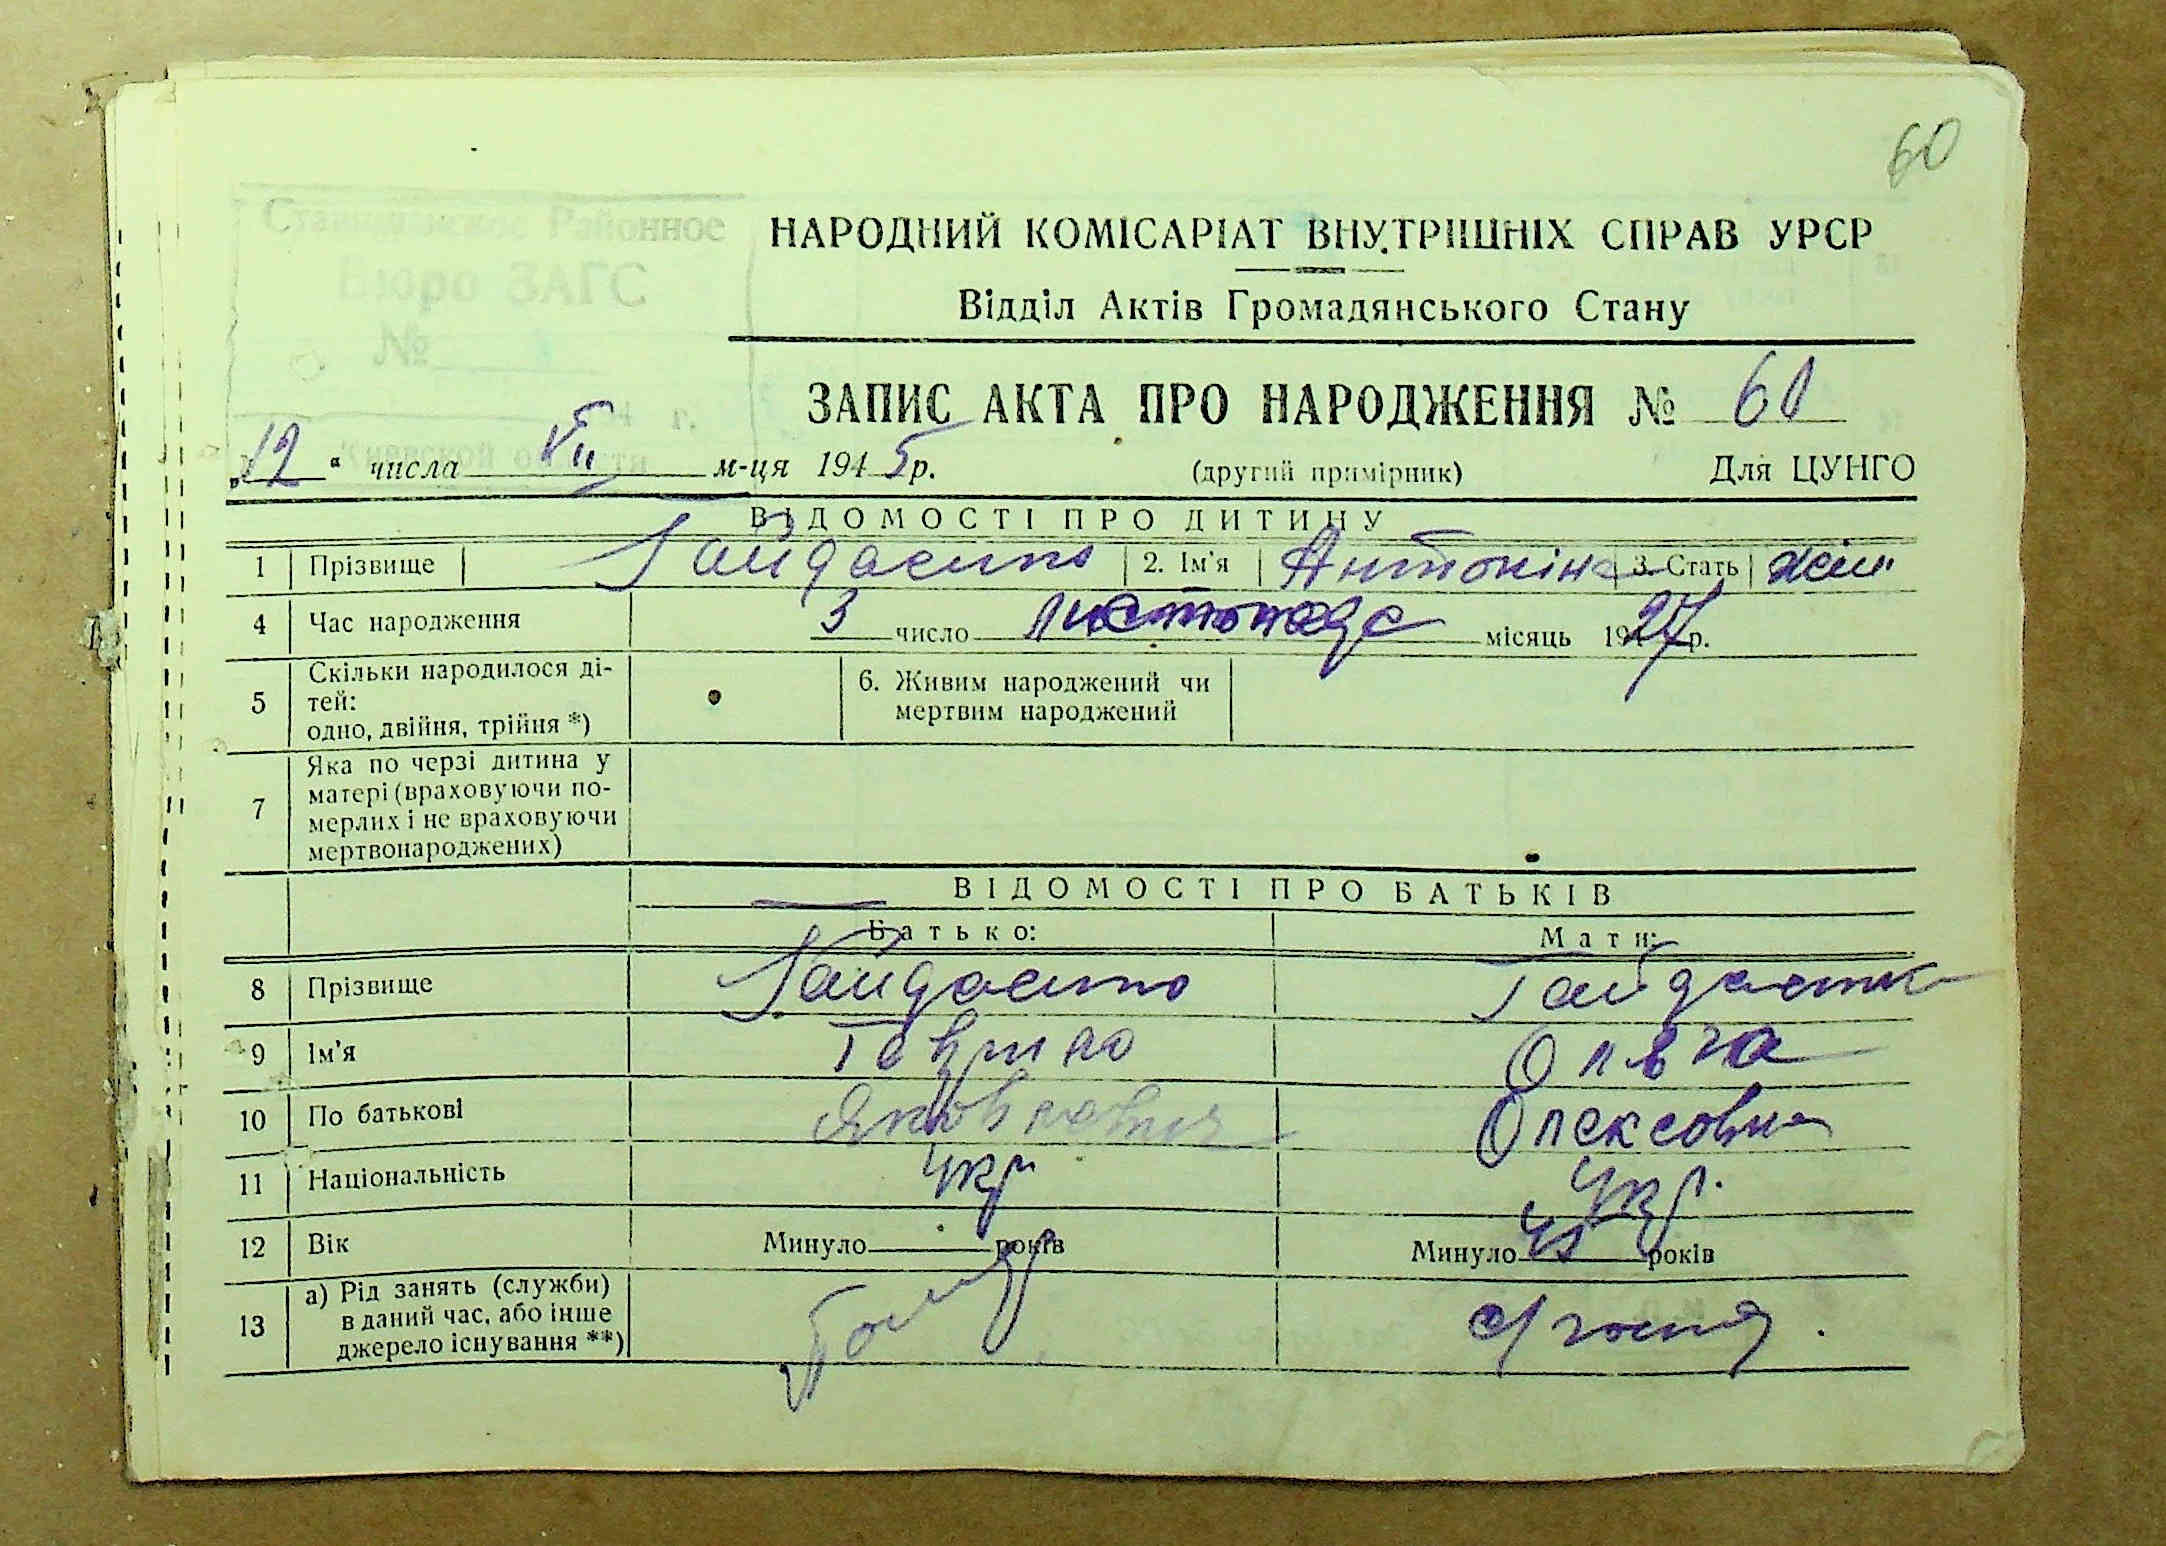 60
Ставищанское Районное
Бюро ЗАГС
№
194 г.
Киевской области
НАРОДНИЙ КОМІСАРІАТ ВНУТРІШНІХ СПРАВ УРСР
Відділ Актів Громадянського Стану
ЗАПИС АКТА ПРО НАРОДЖЕННЯ № 60
"12" числа VII м-ця 1945 р. (другий примірник) Для ЦУНГО
ВІДОМОСТІ ПРО ДИТИНУ
1 Прізвище 2. Ім'я Антоніна 3. Стать жін
4 Час народження 3 число листопада місяць 1927 р.
5 Скільки народилося ді-
тей:
одно, двійня, трійня *)
6. Живим народжений чи
мертвим народжений
7 Яка по черзі дитина у
матері (враховуючи по-
мерлих і не враховуючи
мертвонароджених)
ВІДОМОСТІ ПРО БАТЬКІВ
Батько: Мати:
8 Прізвище
9 Ім'я Гаврило Ольга
10 По батькові Яковлевич Олексовна
11 Національність Укр Укр.
12 Вік Минуло років Минуло 45 років
13 а) Рід занять (служби)
в даний час, або інше
джерело існування **)